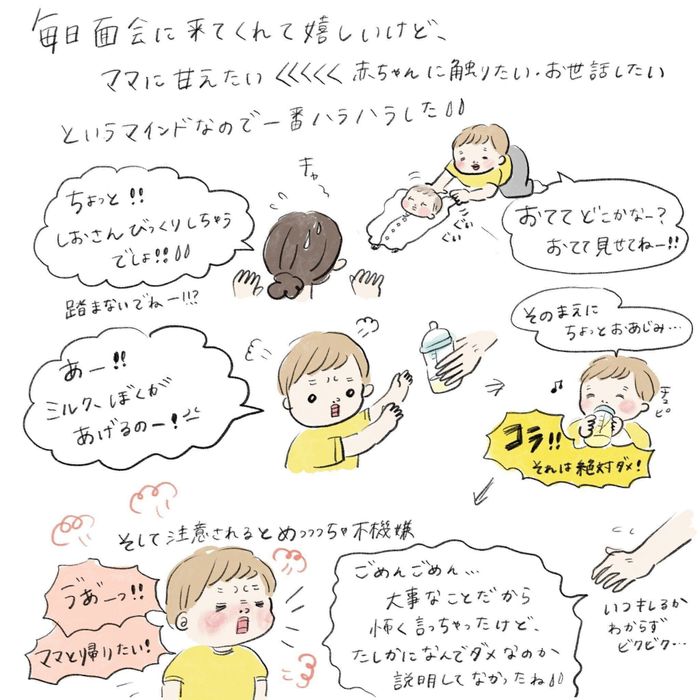 毎日面会に来てくれて嬉しいけど、
ママに甘えたい<<<<<赤ちゃんに触りたい・お世話したい
というマインドなので一番ハラハラした
ちょっと!!
しおさんびっくりしちゃう
でしょ!!
踏まないでねー!!!?
キャー
ぐい
ぐい
おててどこかなー?
おてて見せてねー!!
あー!!
ミルク、ぼくが
あげるのー!
そのまえに
ちょっとおあじみ…
チュピ
コラ!!
それは絶対ダメ!
そして注意されるとめっっっちゃ不機嫌
うあ゛ーっ!!
ママと帰りたい!
ごめんごめん…
大事なことだから
怖く言っちゃったけど、
たしかになんでダメなのか
説明してなかったね
いつキレるか
わからず
ビクビク…